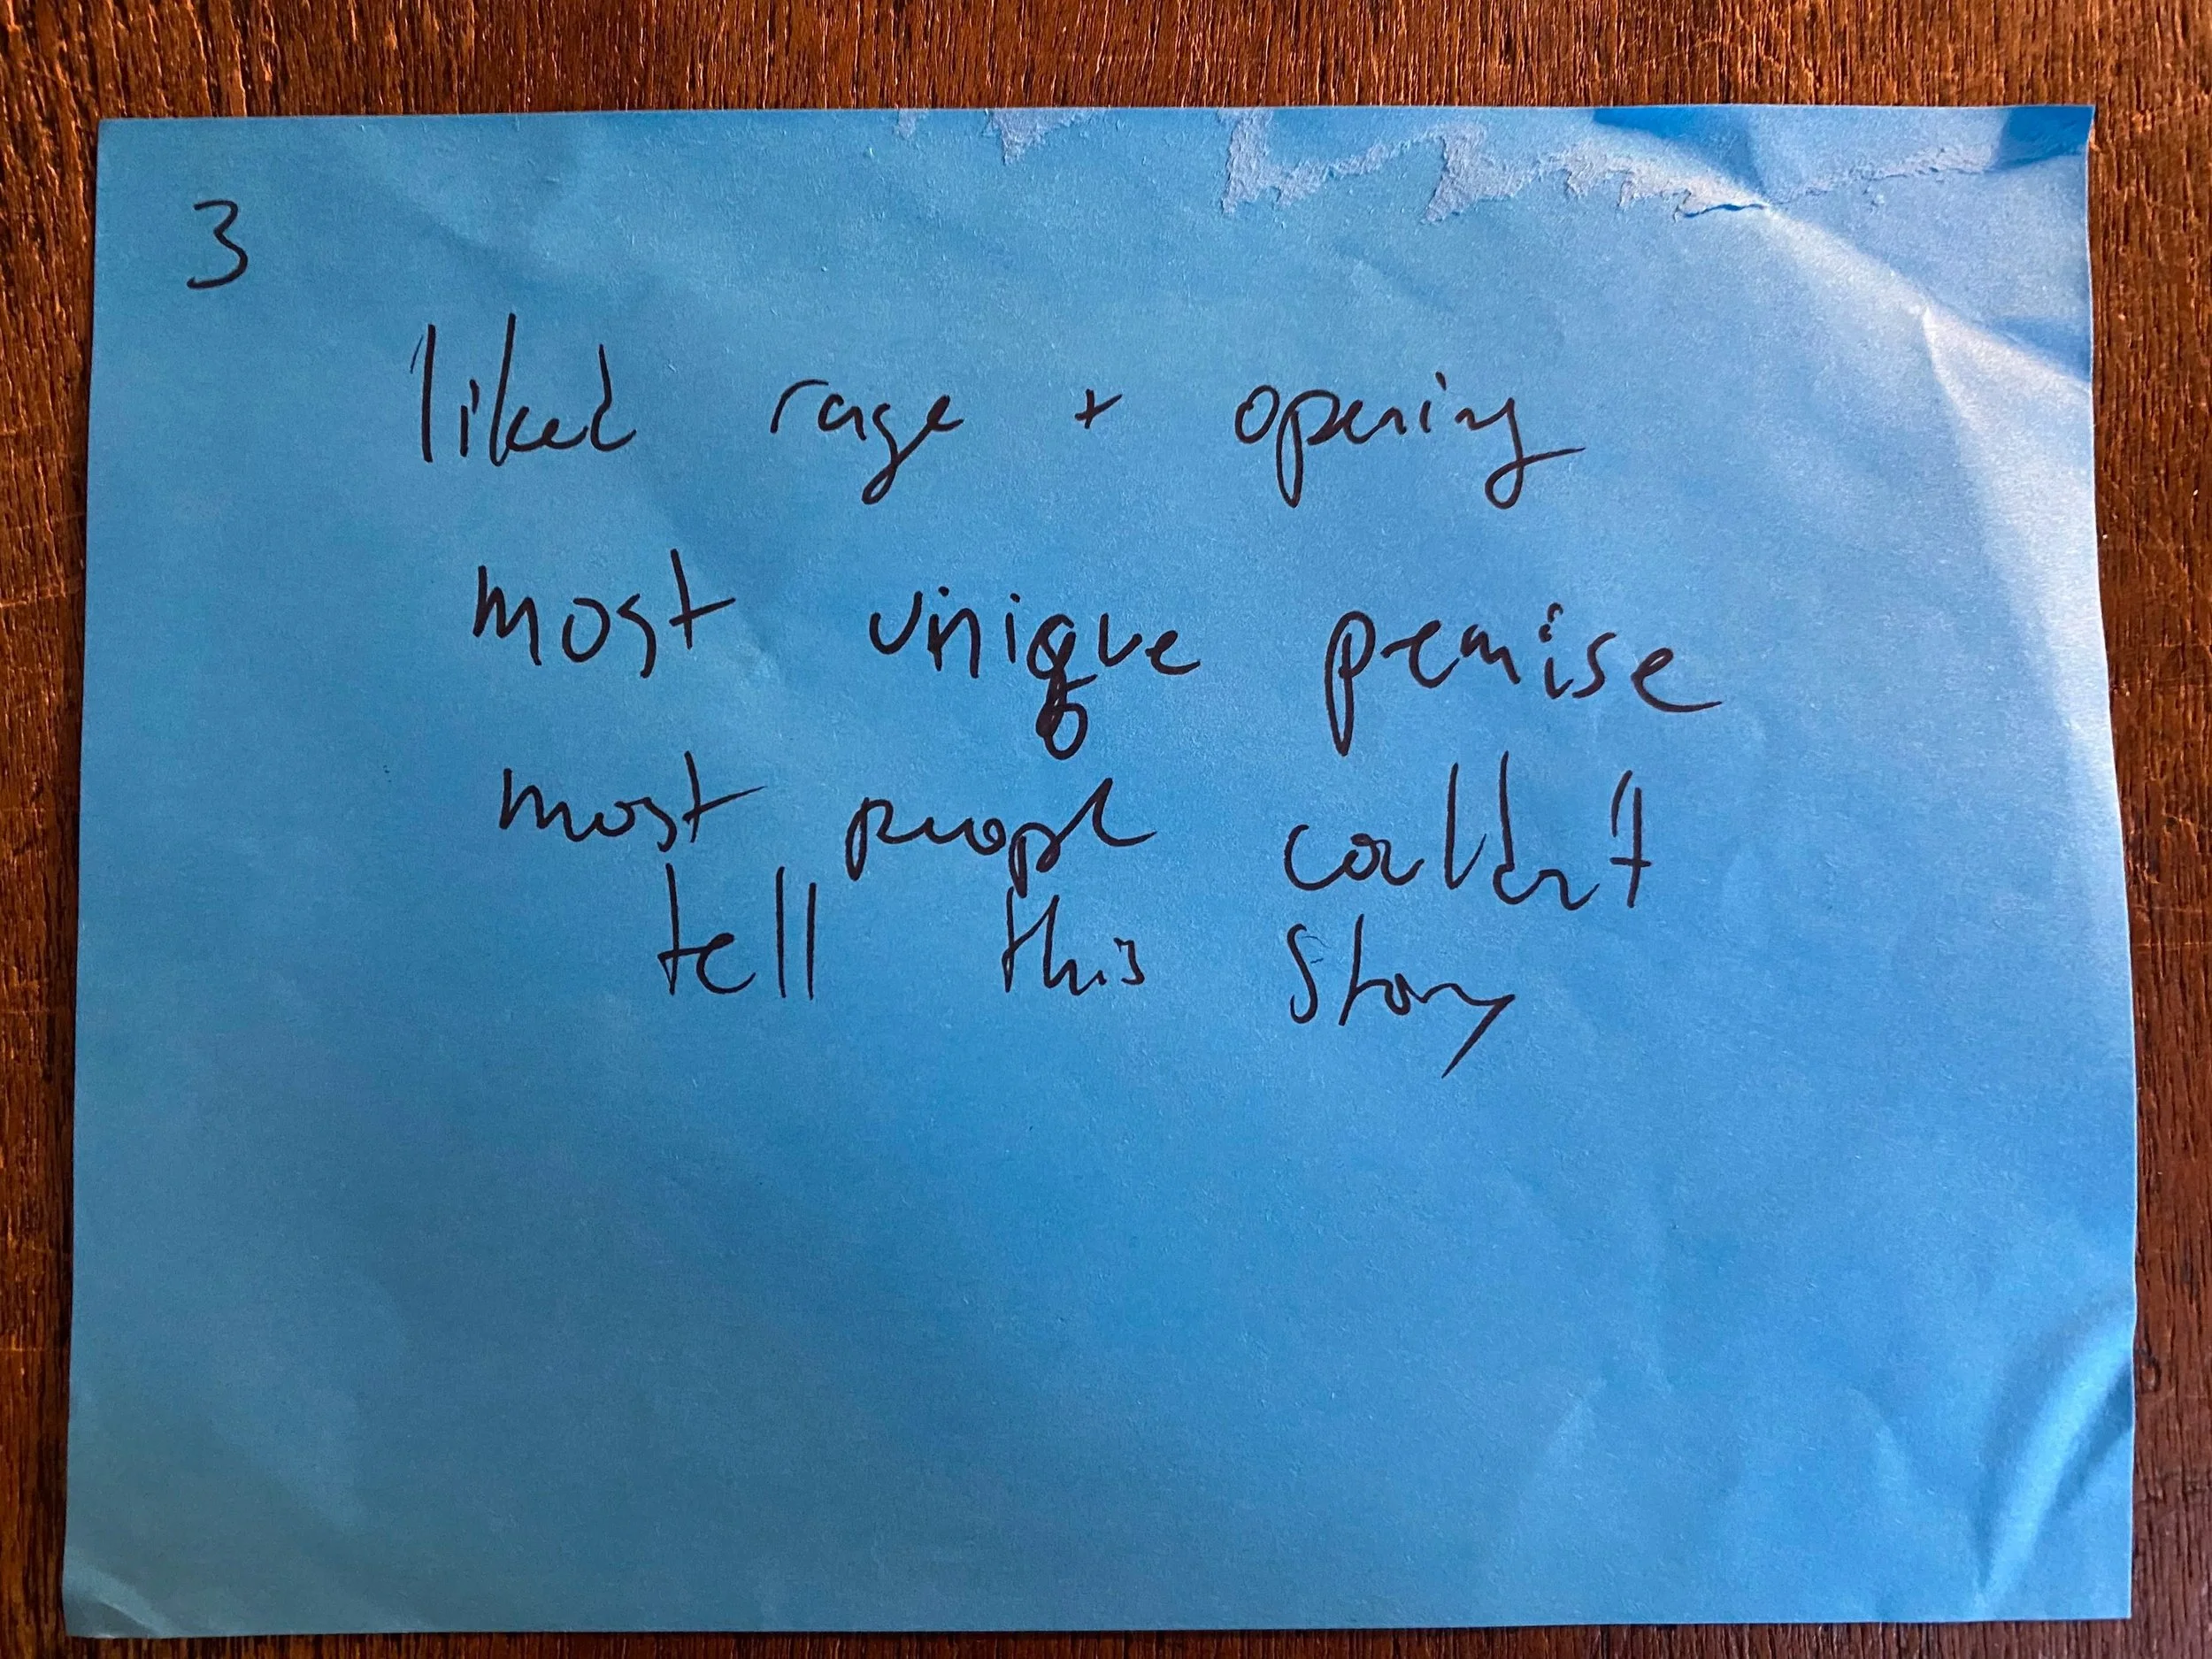 3
liked rage + opening
most unique pemise
most people couldn't
tell this story